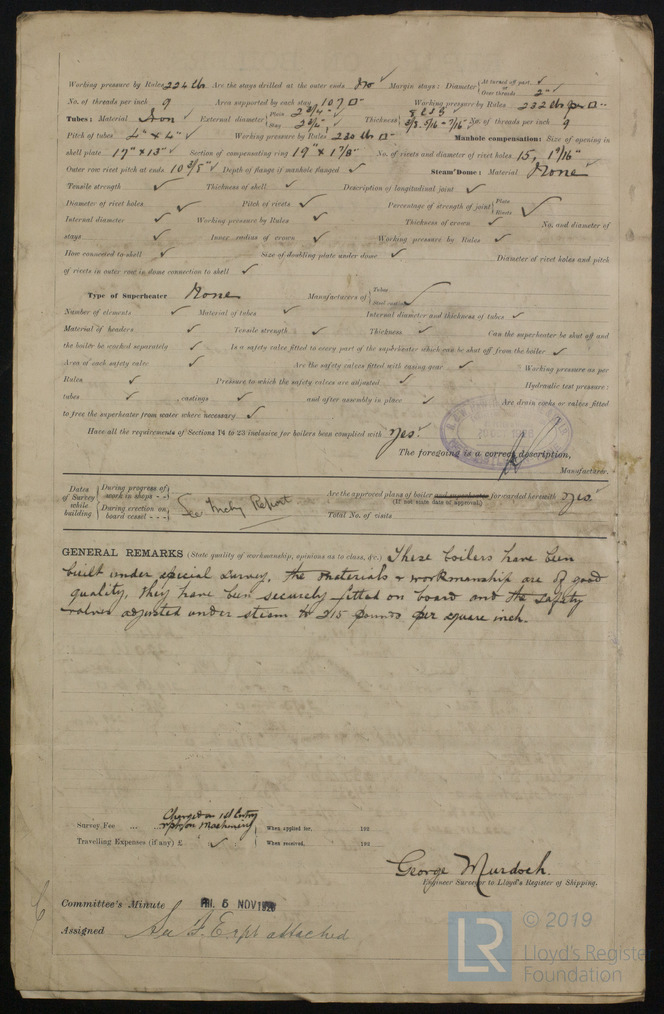 Working pressure by Rules 224 lbs Are the stays drilled at the outer ends No ✓ Margin stays: Diameter { At turned off part. ✓
Over threads 2" ✓
No. of threads per inch 9 Area supported by each stay 107 □" Working pressure by Rules 232 lbs per □" ✓
Tubes: Material Iron ✓ External diameter { Plain 2 3/4" ✓
Stay 2 3/4" Thickness { 8 LSG
5/8 9/16 - 7/16" ✓ No. of threads per inch 9
Pitch of tubes 4" x 4" ✓ Working pressure by Rules 230 lbs □" Manhole compensation: Size of opening in
shell plate 17" x 13" ✓ Section of compensating ring 19" x 1 7/8" No. of rivets and diameter of rivet holes 15, 1 9/16"
Outer row rivet pitch at ends 10 3/8" ✓ Depth of flange if manhole flanged ✓ Steam Dome: Material None
Tensile strength ✓ Thickness of shell ✓ Description of longitudinal joint ✓
Diameter of rivet holes ✓ Pitch of rivets ✓ Percentage of strength of joint { Plate
Rivets ✓
Internal diameter ✓ Working pressure by Rules ✓ Thickness of crown ✓ No. and diameter of
stays ✓ Inner radius of crown ✓ Working pressure by Rules ✓
How connected to shell ✓ Size of doubling plate under dome ✓ Diameter of rivet holes and pitch
of rivets in outer row in dome connection to shell ✓
Type of Superheater None Manufacturers of { Tubes
Steel castings ✓
Number of elements ✓ Material of tubes ✓ Internal diameter and thickness of tubes ✓
Material of headers ✓ Tensile strength ✓ Thickness ✓ Can the superheater be shut off and
the boiler be worked separately ✓ Is a safety valve fitted to every part of the superheater which can be shut off from the boiler ✓
Area of each safety valve ✓ Are the safety valves fitted with easing gear ✓ Working pressure as per
Rules ✓ Pressure to which the safety valves are adjusted ✓ Hydraulic test pressure:
tubes ✓ castings ✓ and after assembly in place ✓ Are drain cocks or valves fitted
to free the superheater from water where necessary ✓
Have all the requirements of Sections 14 to 23 inclusive for boilers been complied with yes.
The foregoing is a correct description,
Manufacturer.
Dates of Survey while building { During progress of work in shops - -
During erection on board vessel - - - } See Mchy Report
Are the approved plans of boiler and superheater forwarded herewith yes.
(If not state date of approval.)
Total No. of visits
GENERAL REMARKS (State quality of workmanship, opinions as to class, &c.) These boilers have been
built under special survey, the materials & workmanship are of good
quality, they have been securely fitted on board and the safety
valves adjusted under steam to 215 pounds per square inch.
Survey Fee ... ... Charged on 1st Entry
rpt on Machinery } When applied for, 192
Travelling Expenses (if any) £ ✓ When received, 192
George Murdoch.
Engineer Surveyor to Lloyd's Register of Shipping.
Committee's Minute FRI. 5 NOV 1926
Assigned See F.E. rpt attached
© 2019
LR Lloyd's Register
Foundation